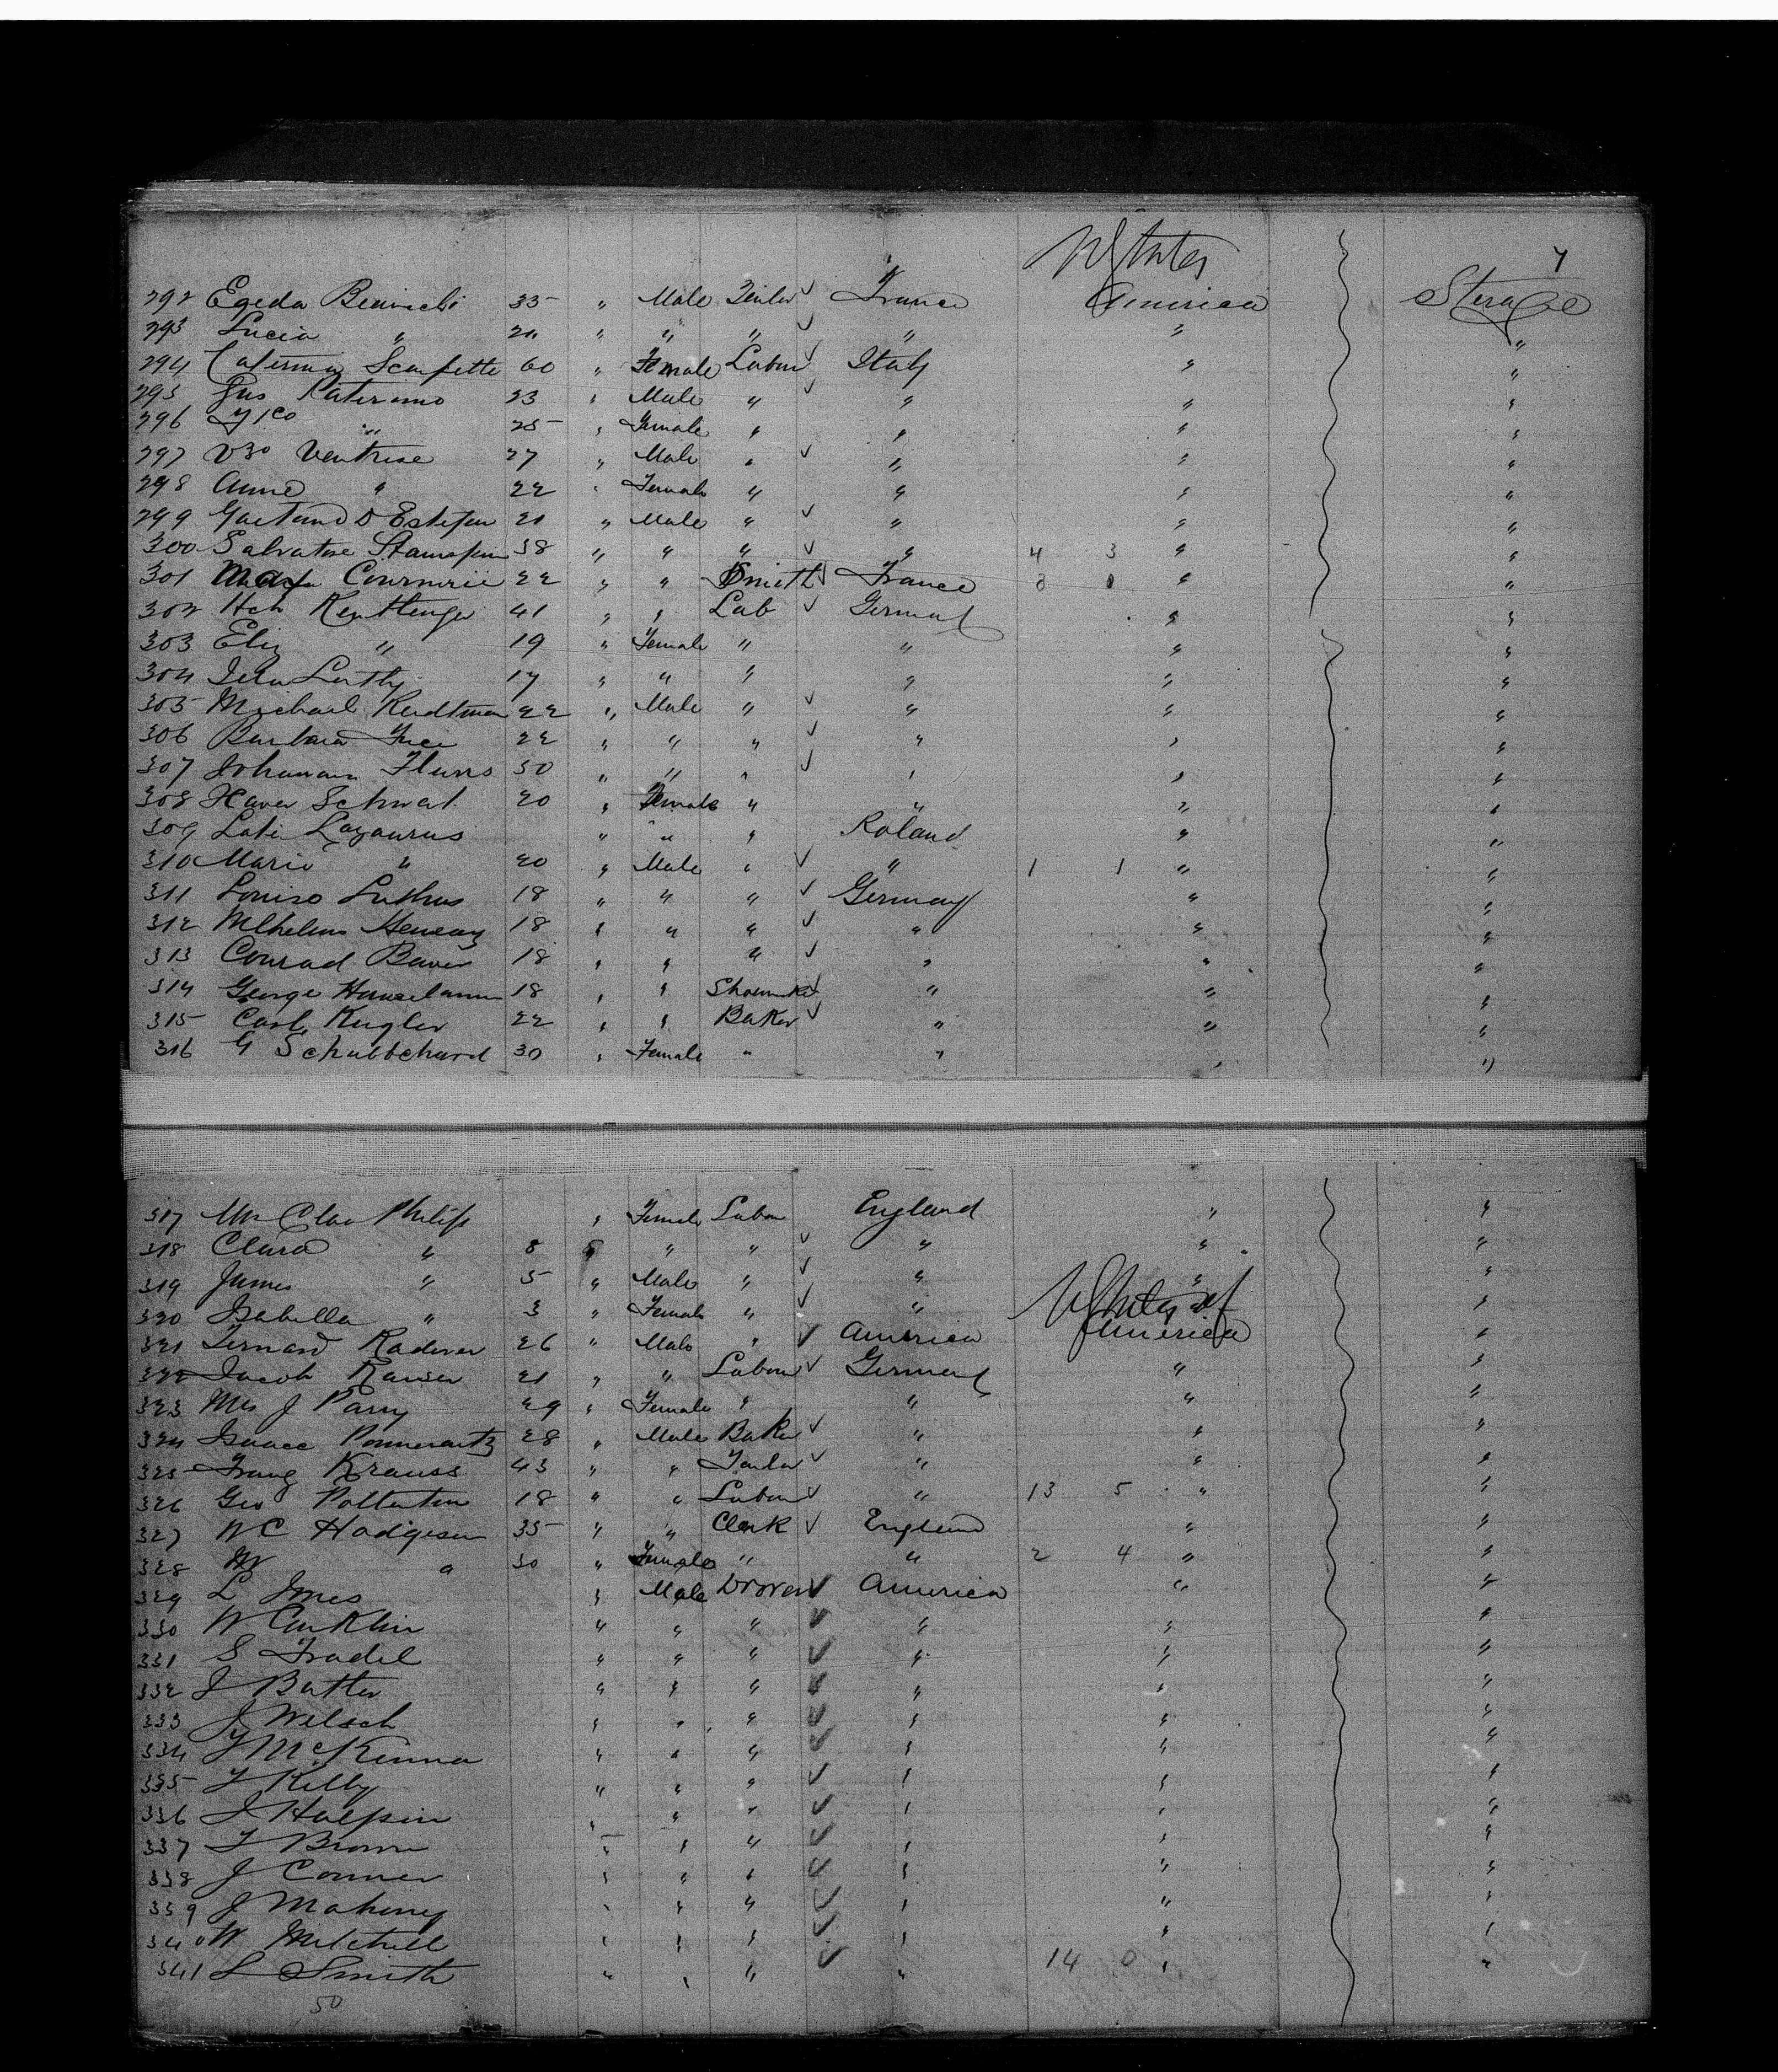 7
292 Egeda Bianichi 35 " Male Tailor ✓ France America Sterage
293 Lucia " 20 " " " ✓ " " "
294 Caterina Scarfette 60 " Female Labour ✓ Italy " "
295 Gus Paterimo 23 " Male " ✓ " " "
296 " 25 " Female " " " "
297 V30 Ventrise 27 " Male " ✓ " " "
298 Anne " 22 " Female " " " "
299 Gaetano D Estefan 21 " Male " ✓ " " "
300 Salvatore 38 " " " ✓ " 4 3 " "
301 22 " " Smith ✓ France 3 " "
302 Hch 41 " " Lab ✓ Germany " "
303 Eliz " 19 " Female " " " "
304 17 " " " " " "
305 Michael 22 " Male " ✓ " " "
306 Barbara 22 " " " ✓ " " "
307 Johanann 30 " " " ✓ " " "
308 Schwat 20 " Female " " " "
309 Lazaurus " " " Poland " "
310 Marie " 20 " Male " ✓ " 1 1 " "
311 Louiso 18 " " " ✓ Germany " "
312 18 " " " ✓ " " "
313 Conrad Bauer 18 " " " ✓ " " "
314 George 18 " " Shoemaker ✓ " " "
315 Carl Kugler 22 " " Baker ✓ " " "
316 G Schubbchard 30 " Female " " " "
317 Mrs Clao Philip " Female Labour England " "
318 Clara " 8 " " " ✓ " " "
319 James " 5 " Male " ✓ " " "
320 Isabella " 3 " Female " ✓ " "
321 Raderer 26 " Male " ✓ America America "
322 Jacob Rauser 21 " " Labour ✓ Germany " "
323 Mrs J Parry 29 " Female " " " "
324 Isaace 28 " Male Baker ✓ " " "
325 Franz Krauss 43 " " Tailor ✓ " " "
326 Geo Pollerton 18 " " Labour ✓ " 13 5 " "
327 W C Hodgeson 35 " " Clerk ✓ England " "
328 W " 30 " Female " " 2 4 " "
329 L Jones " Male Drover ✓ America " "
330 W Conklin " " " ✓ " " "
331 S Fradel " " " ✓ " " "
332 J Butler " " " ✓ " " "
333 J Welsch " " " ✓ " " "
334 McKenna " " " ✓ " " "
335 T Kelly " " " ✓ " " "
336 J Halpin " " " ✓ " " "
337 T Brown " " " ✓ " " "
338 J Conner " " " ✓ " " "
339 J Mahony " " " ✓ " " "
340 W Mitchell " " " ✓ " " "
341 L Smith " " " ✓ " 14 0 " "
50